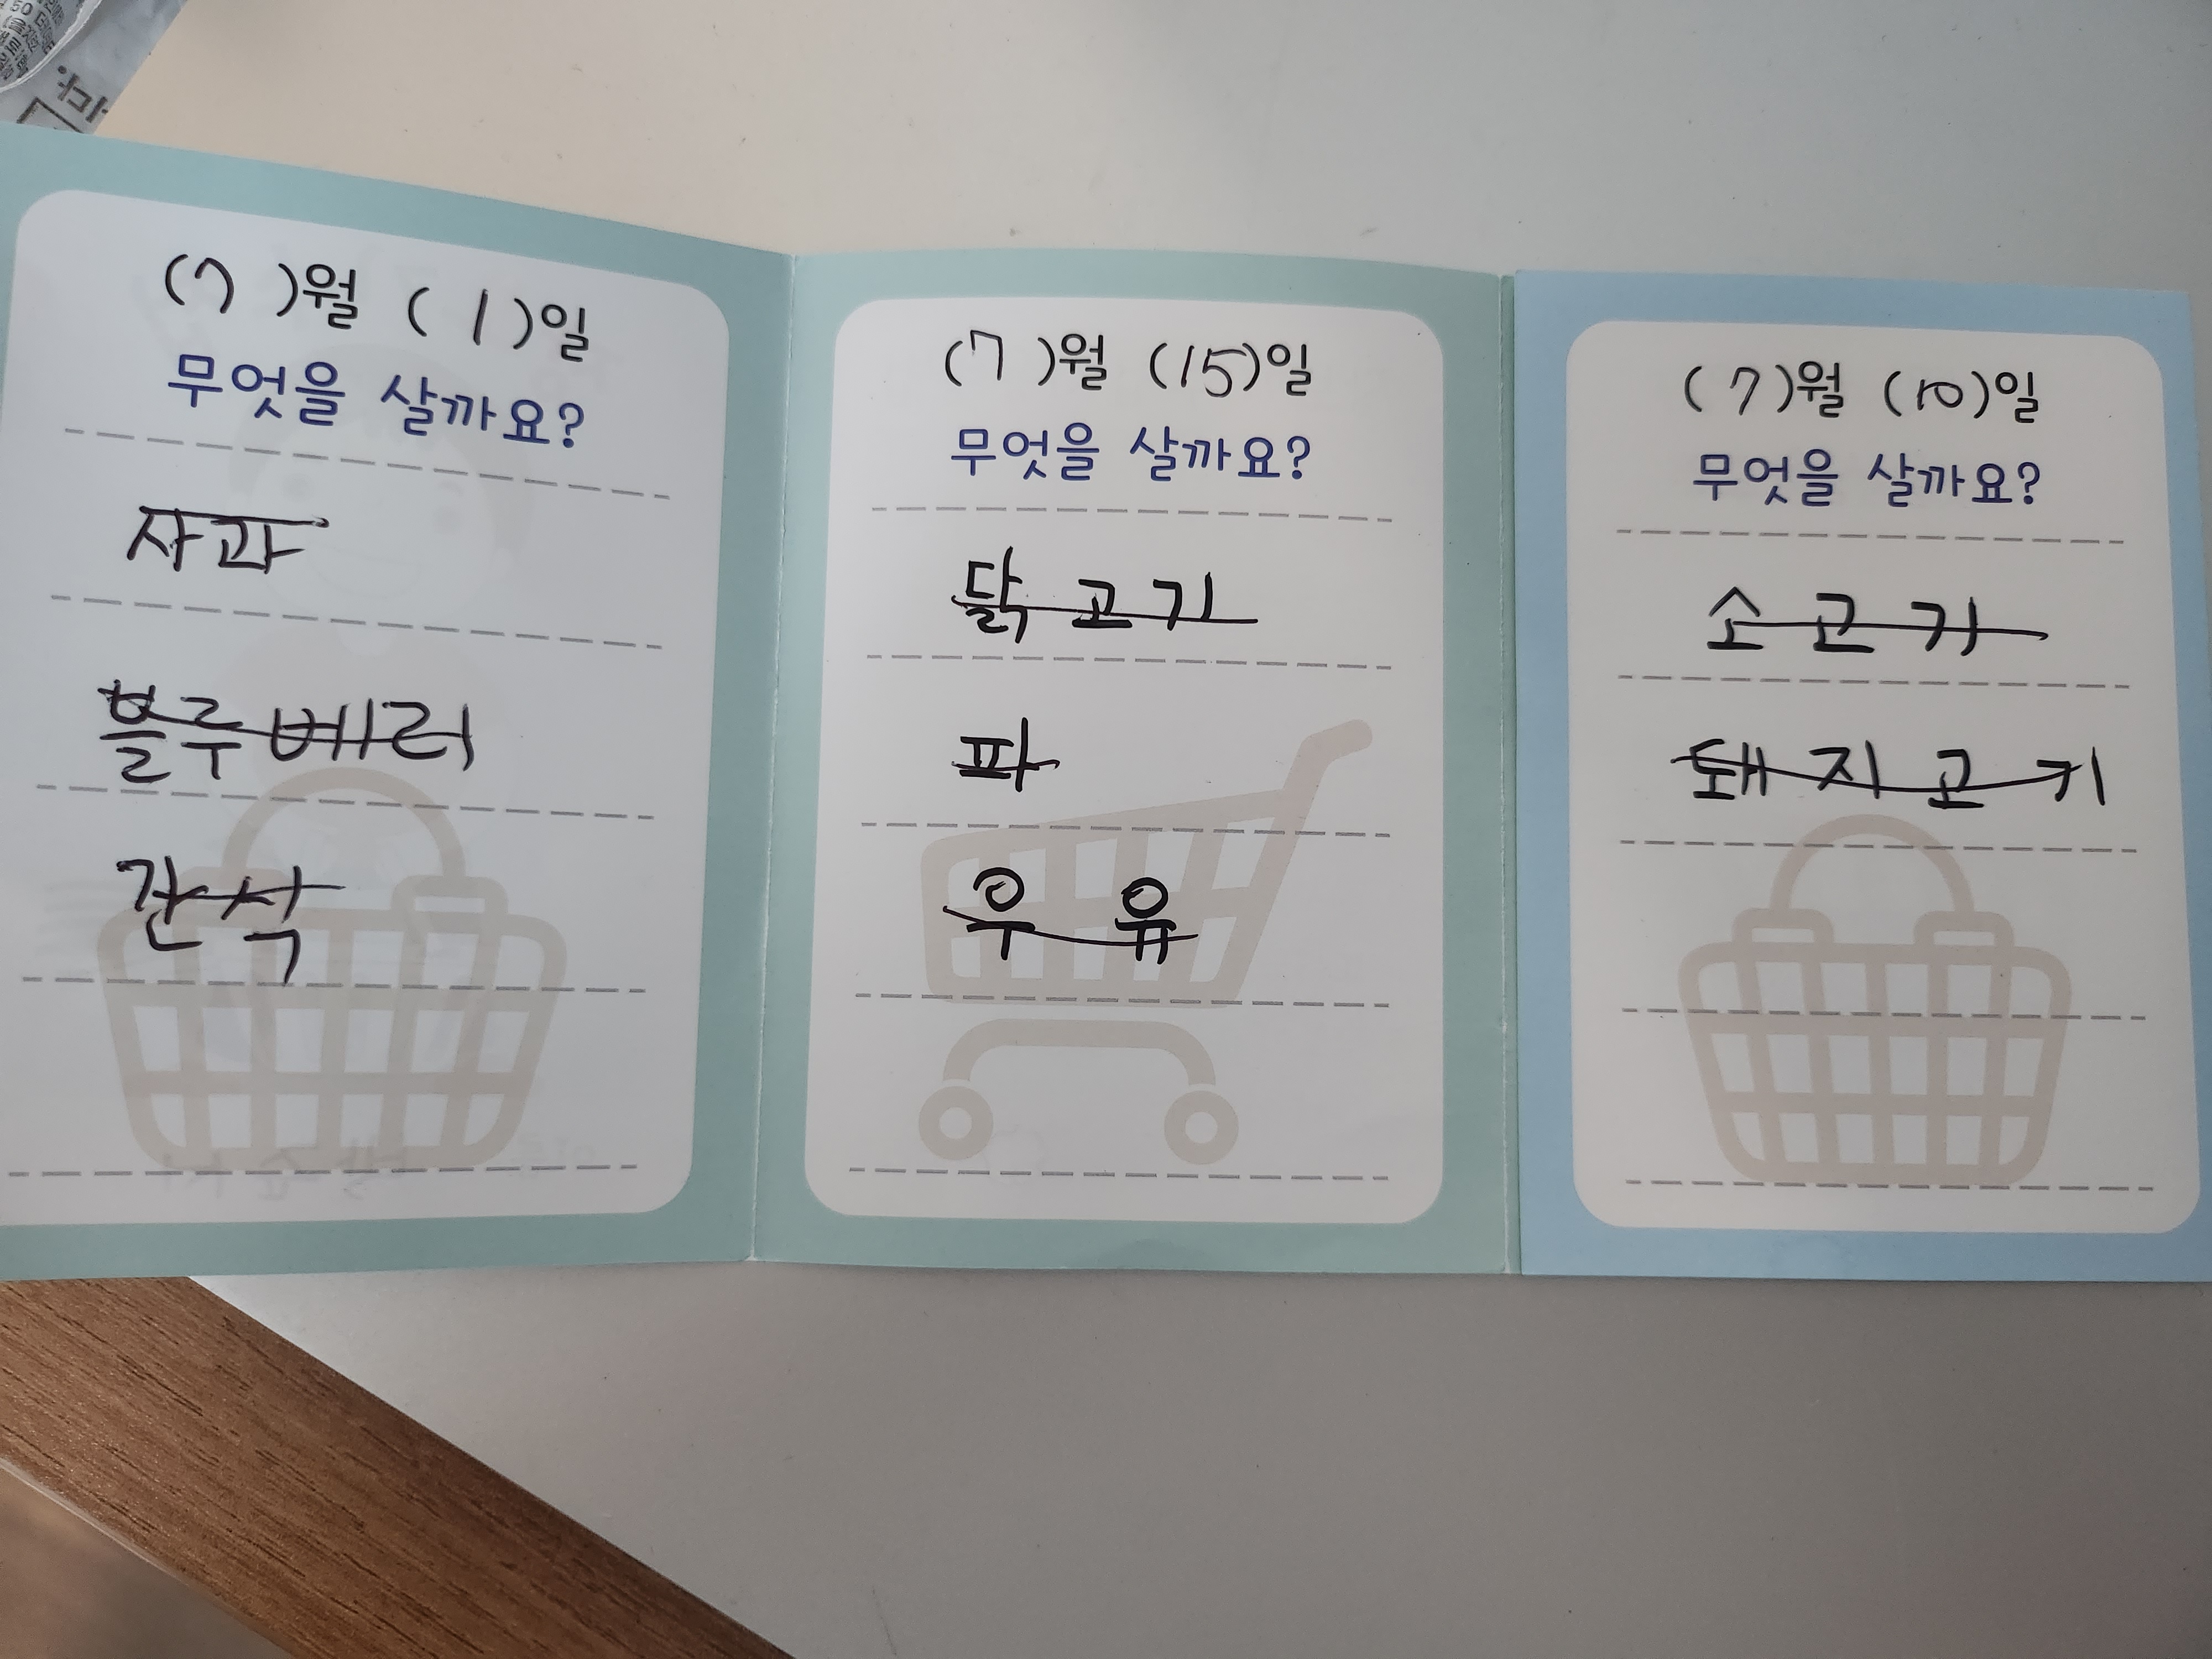 (7)월 (1)일
무엇을 살까요?
사과
블루베리
간식
(7)월 (15)일
무엇을 살까요?
닭고기
파
우유
(7)월 (10)일
무엇을 살까요?
소고기
돼지고기